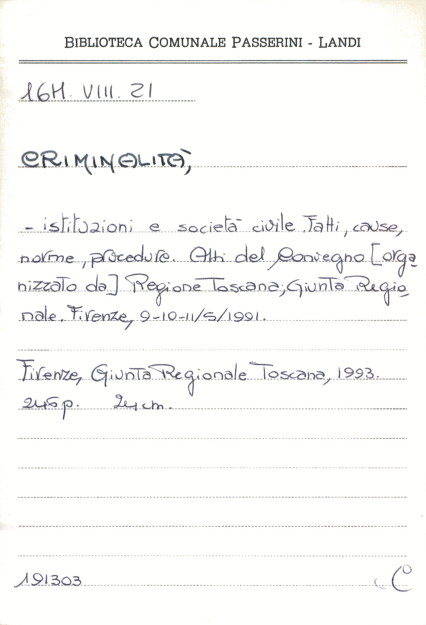 BIBLIOTECA COMUNALE PASSERINI - LANDI
16H. VIII. 21
CRIMINALITÀ,
- istituzioni e società civile. Fatti, cause,
norme, procedure. Atti del Convegno [orga
nizzato da] Regione Toscana, Giunta Regio
nale. Firenze, 9-10-11/5/1991.
Firenze, Giunta Regionale Toscana, 1993.
246 p. 24 cm.
191303 C